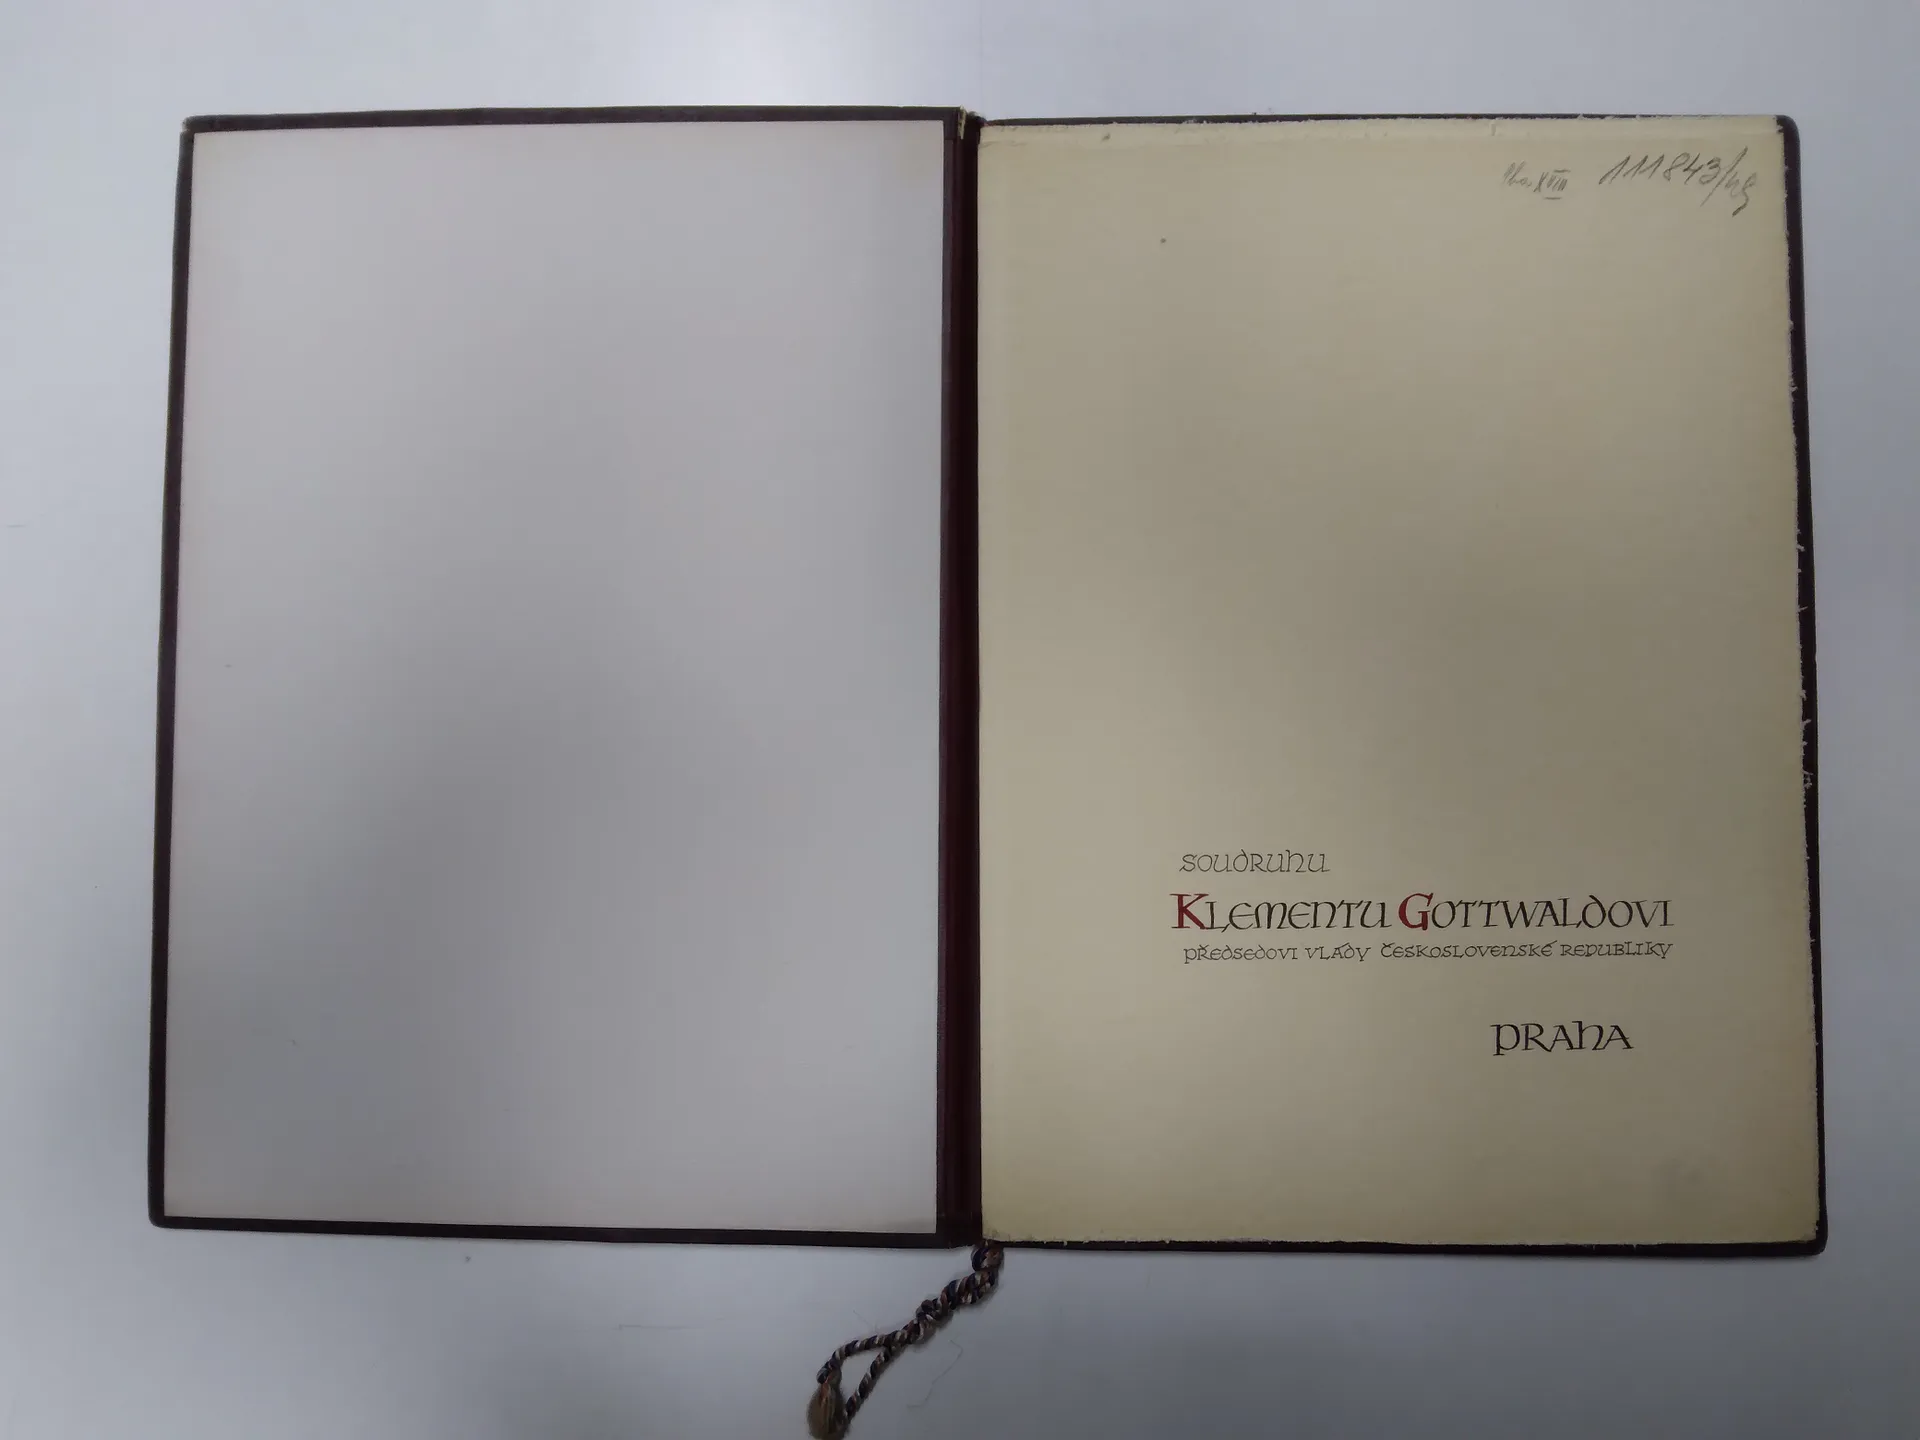 XVIII 111843/48
soudruhu
Klementu Gottwaldovi
předsedovi vlády Československé republiky
Praha